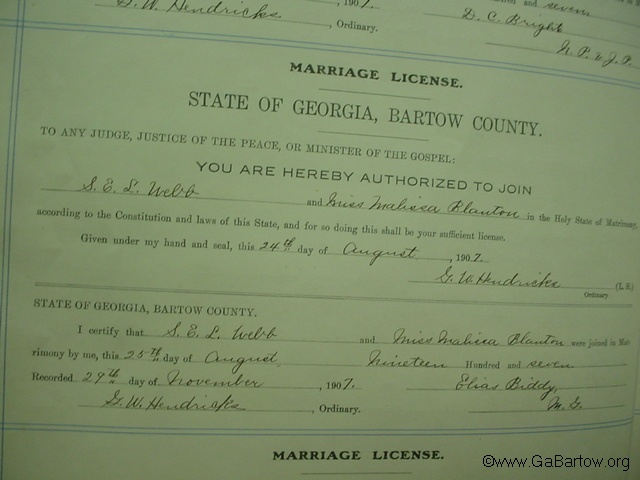 G. W. Hendricks , 1907. Hundred and seven
, Ordinary. D. C. Bright
N. P. & J. P.
MARRIAGE LICENSE.
STATE OF GEORGIA, BARTOW COUNTY.
TO ANY JUDGE, JUSTICE OF THE PEACE, OR MINISTER OF THE GOSPEL:
YOU ARE HEREBY AUTHORIZED TO JOIN
S. E. L. Webb and Miss Malissa Blanton in the Holy State of Matrimony,
according to the Constitution and laws of this State, and for so doing this shall be your sufficient license.
Given under my hand and seal, this 24th day of August , 1907.
G. W. Hendricks (L. S.)
Ordinary
STATE OF GEORGIA, BARTOW COUNTY.
I certify that S. E. L. Webb and Miss Malissa Blanton were joined in Mat-
rimony by me, this 25th day of August, Nineteen Hundred and seven
Recorded 29th day of November , 1907. Elias Biddy,
G. W. Hendricks , Ordinary. M. G.
MARRIAGE LICENSE.
©www.GaBartow.org